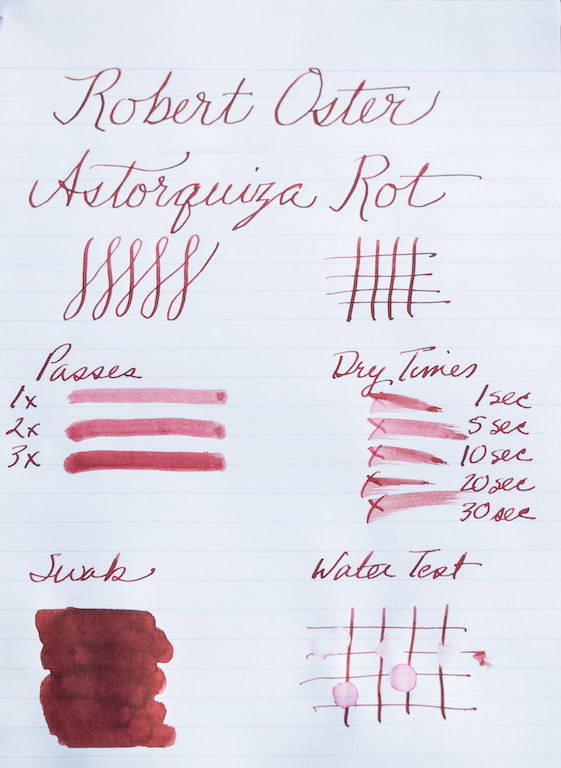 Robert Oster
Astorquiza Rot
Passes
1x
2x
3x
Dry Times
1 sec
5 sec
10 sec
20 sec
30 sec
Swab
Water Test